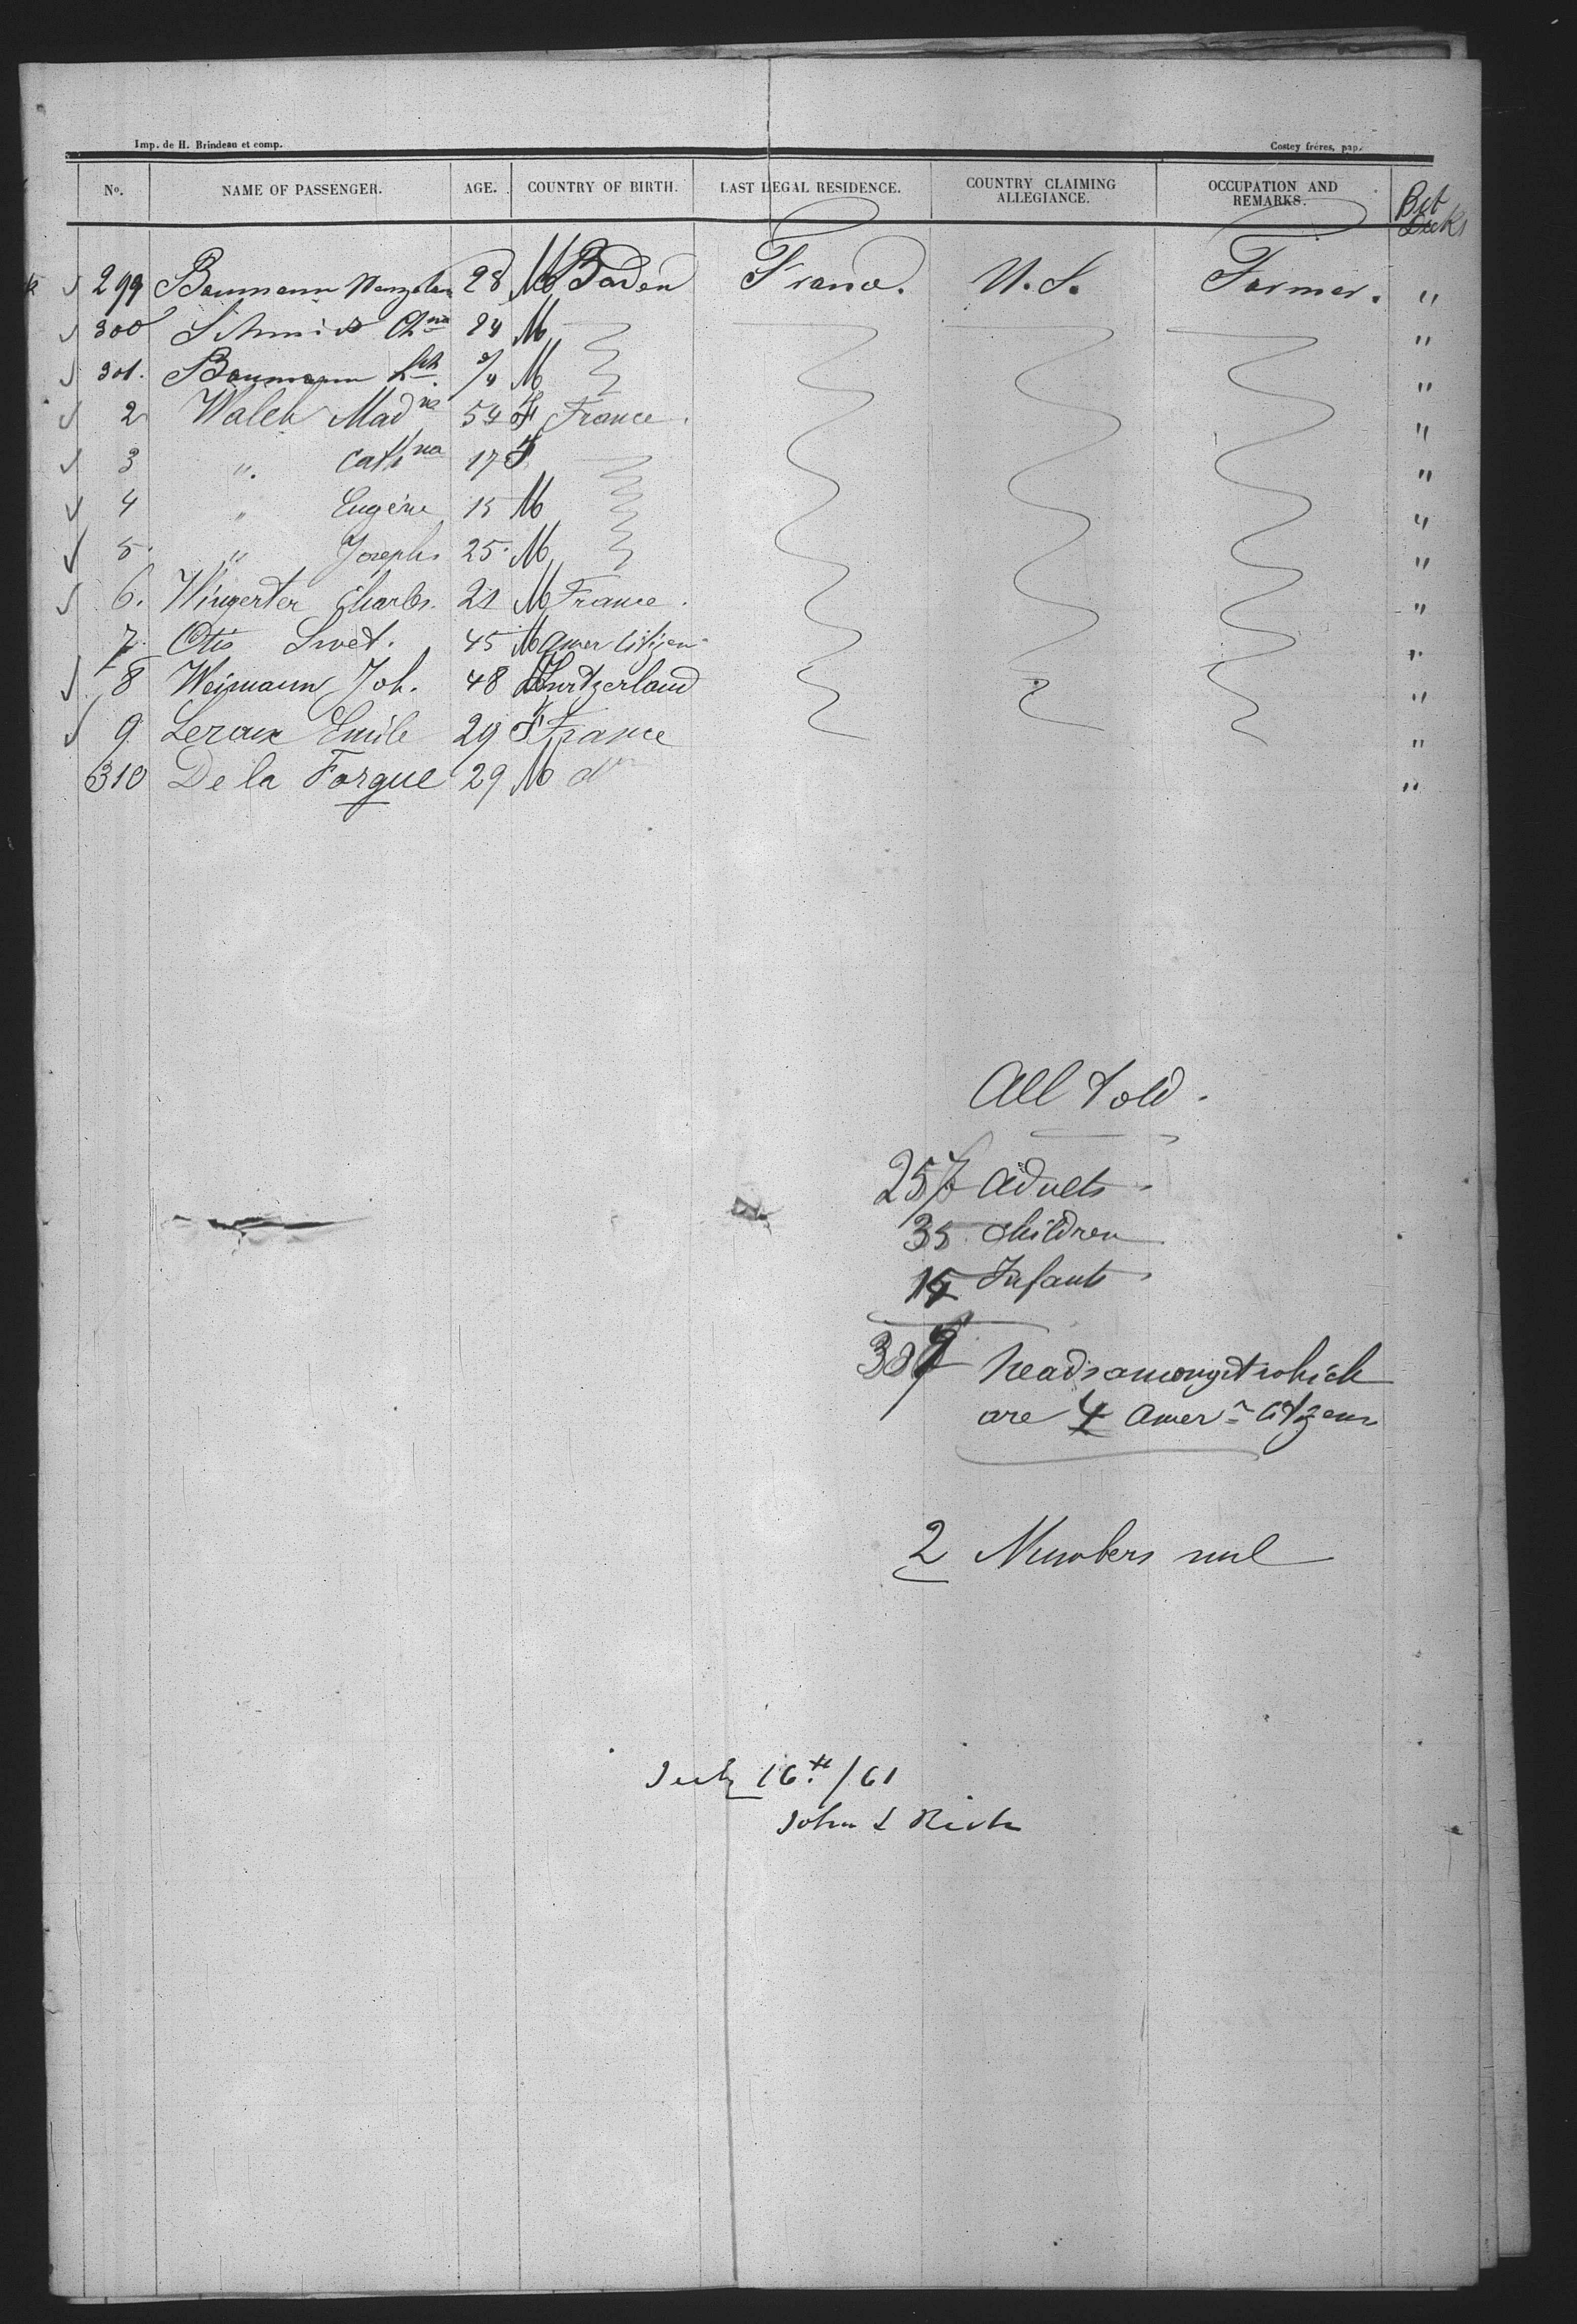 Imp. de H. Brindeau et comp. Costey frères, pap.
No. NAME OF PASSENGER. AGE. COUNTRY OF BIRTH. LAST LEGAL RESIDENCE. COUNTRY CLAIMING ALLEGIANCE. OCCUPATION AND REMARKS. Bet Decks
299 Baumann 28 M Baden France. U.S. Farmer. "
300 Schmid 24 M "
301. Baumann 3/4 M "
2 Walch Madna 54 F France. "
3 " Cathna 17 F "
4 " Eugène 15 M "
5. " Joseph 25. M "
6. Wingerter Charles. 21 M France. "
7. Otis Swet. 45 M Amer Citizen "
8 Weimann Joh. 48 M Switzerland "
9 Leroux Emile 29 F France "
310 De la Forgue 29 M do "
All told.
257 Adults.
35 Children
Infants.
heads amongst which
are 4 Amern Citizens
2 Numbers nul
July 16th /61
John L Rich